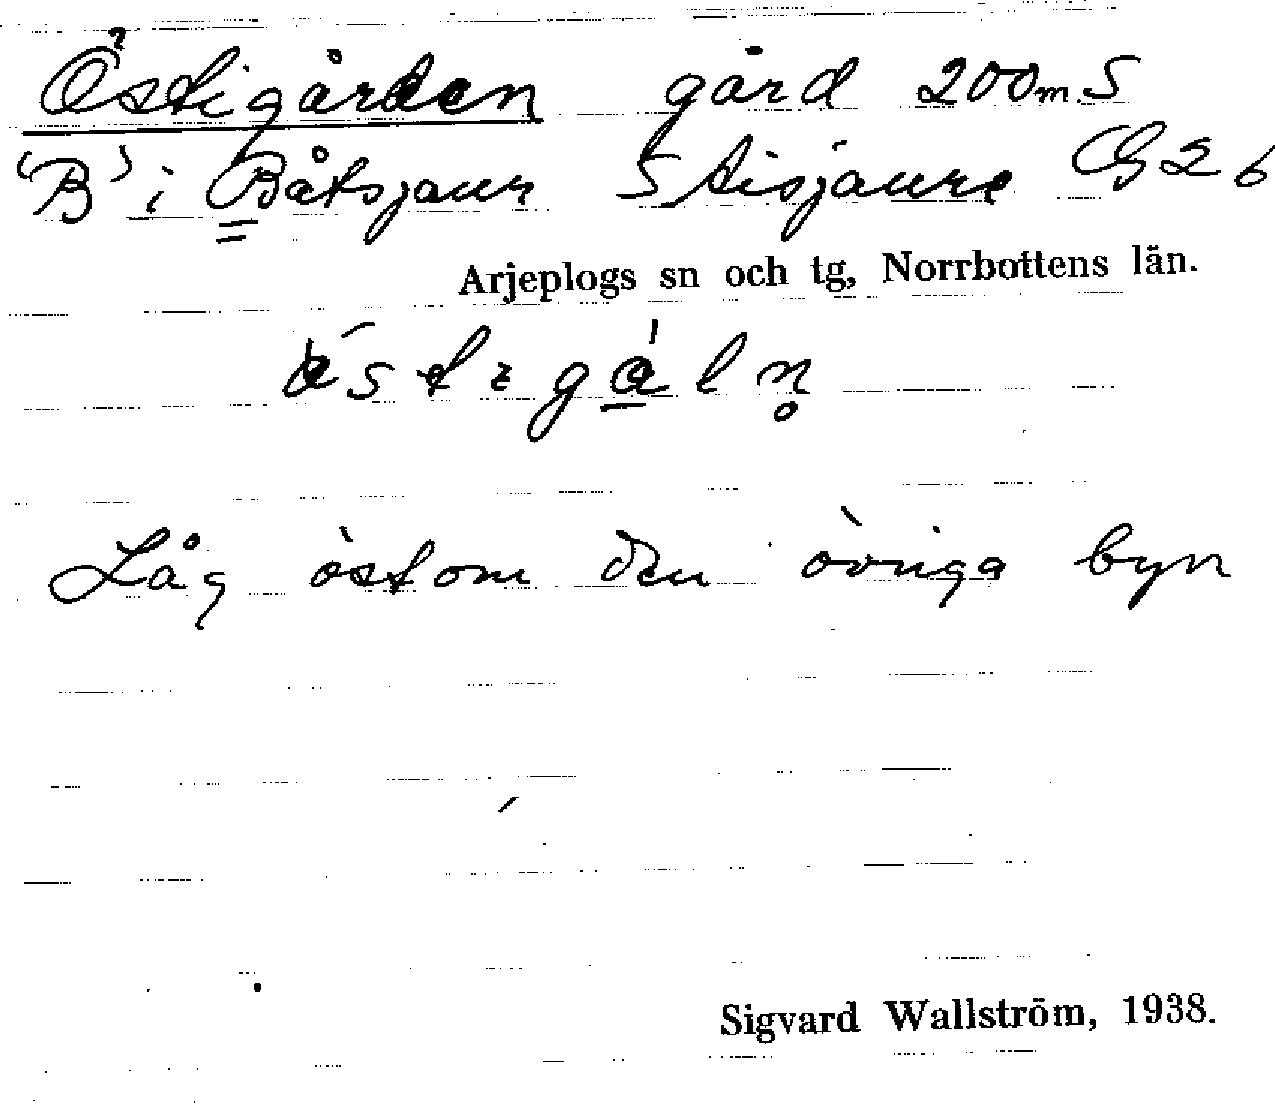 Östigården gård 200m S
"B" i Båtsjaur S Aisjaure G2b
Arjeplogs sn och tg, Norrbottens län.
Låg östom den övriga byn
Sigvard Wallström, 1938.